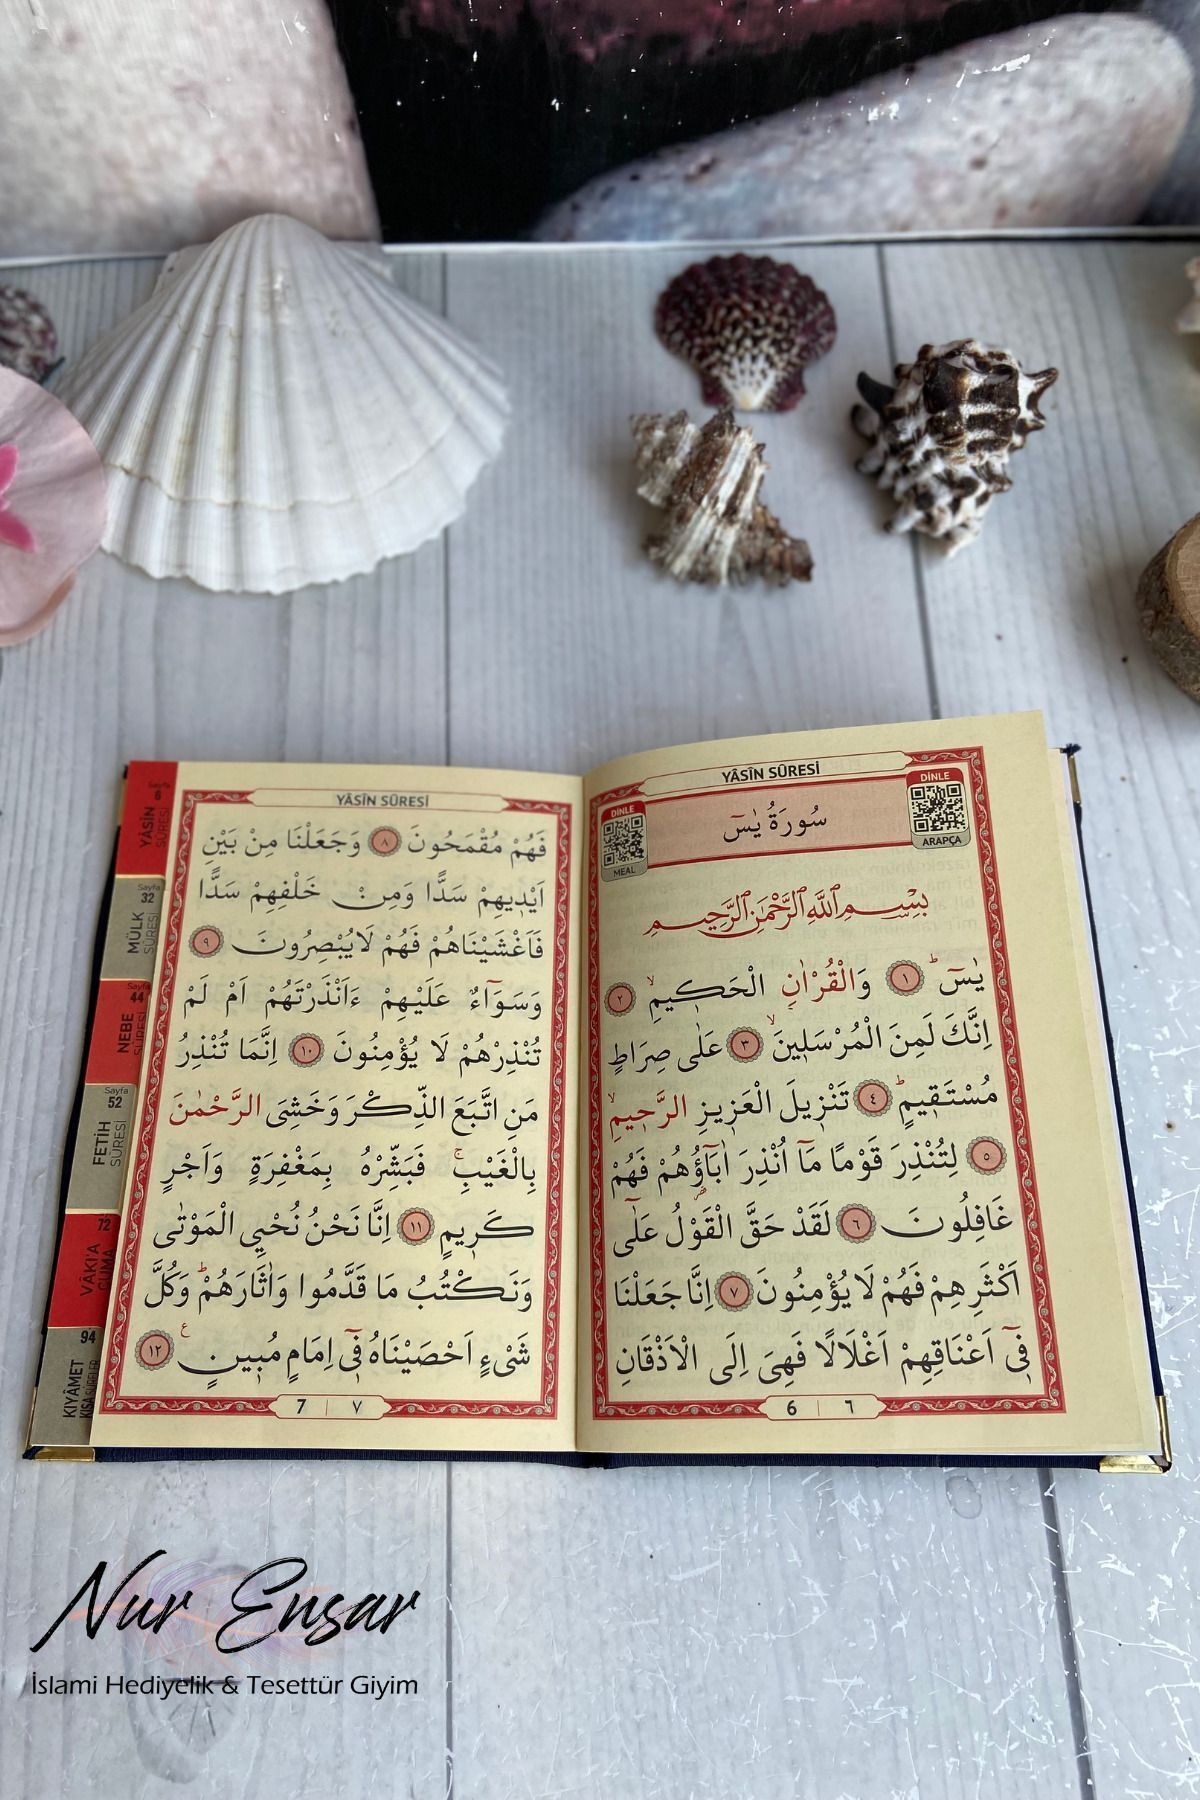 YÂSÎN SÛRESİ
DİNLE
MEAL
سُورَةُ يٰسٓ
DİNLE
ARAPÇA
بِسْمِ اللّٰهِ الرَّحْمٰنِ الرَّحِيمِ
يٰسٓ ۚ ﴿١﴾ وَالْقُرْاٰنِ الْحَكٖيمِۙ ﴿٢﴾
اِنَّكَ لَمِنَ الْمُرْسَلٖينَۙ ﴿٣﴾ عَلٰى صِرَاطٍ
مُسْتَقٖيمٍؕ ﴿٤﴾ تَنْزٖيلَ الْعَزٖيزِ الرَّحٖيمِۙ
﴿٥﴾ لِتُنْذِرَ قَوْمًا مَٓا اُنْذِرَ اٰبَٓاؤُ۬هُمْ فَهُمْ
غَافِلُونَ ﴿٦﴾ لَقَدْ حَقَّ الْقَوْلُ عَلٰٓى
اَكْثَرِهِمْ فَهُمْ لَا يُؤْمِنُونَ ﴿٧﴾ اِنَّا جَعَلْنَا
فٖٓي اَعْنَاقِهِمْ اَغْلَالًا فَهِيَ اِلَى الْاَذْقَانِ
6 | ٦
YÂSÎN SÛRESİ
فَهُمْ مُقْمَحُونَ ﴿٨﴾ وَجَعَلْنَا مِنْ بَيْنِ
اَيْدٖيهِمْ سَدًّا وَمِنْ خَلْفِهِمْ سَدًّا
فَاَغْشَيْنَاهُمْ فَهُمْ لَا يُبْصِرُونَ ﴿٩﴾
وَسَوَٓاءٌ عَلَيْهِمْ ءَاَنْذَرْتَهُمْ اَمْ لَمْ
تُنْذِرْهُمْ لَا يُؤْمِنُونَ ﴿١٠﴾ اِنَّمَا تُنْذِرُ
مَنِ اتَّبَعَ الذِّكْرَ وَخَشِيَ الرَّحْمٰنَ
بِالْغَيْبِۚ فَبَشِّرْهُ بِمَغْفِرَةٍ وَاَجْرٍ
كَرٖيمٍ ﴿١١﴾ اِنَّا نَحْنُ نُحْيِي الْمَوْتٰى
وَنَكْتُبُ مَا قَدَّمُوا وَاٰثَارَهُمْؕ وَكُلَّ
شَيْءٍ اَحْصَيْنَاهُ فٖٓي اِمَامٍ مُبٖينٍ ﴿١٢﴾ ع
7 | ٧
Sayfa
6
YÂSÎN
SÛRESİ
Sayfa
32
MÜLK
SÛRESİ
Sayfa
44
NEBE
SÛRESİ
Sayfa
52
FETİH
SÛRESİ
72
VÂKI'A
CUMA
94
KIYÂMET
KISA SÛRELER
Nur Ensar
İslami Hediyelik & Tesettür Giyim